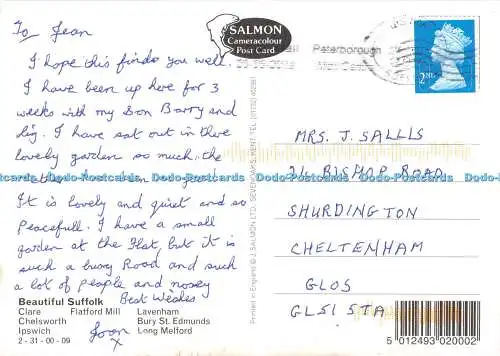 To Jean
I hope this finds you well.
I have been up here for 3
weeks with my Son Barry and
I have sat out in there
lovely garden so much, the
weather has been so good.
It is lovely and quiet and so
Peacefull. I have a small
garden at the Flat, but it is
such a busy Road and such
a lot of people and nosey
Best Wishes
Joan
x
Beautiful Suffolk
Clare Flatford Mill Lavenham
Chelsworth Bury St. Edmunds
Ipswich Long Melford
2 - 31 - 00 - 09
SALMON
Cameracolour
Post Card
Printed in England © J. SALMON LTD., SEVENOAKS, KENT. TEL: (01732) 452381
Peterborough
2ND
MRS. J. SALLIS
34 BISHOP ROAD
SHURDINGTON
CHELTENHAM
GLOS
GL51 5TA
5 012493 020002
Dodo-Postcards Dodo-Postcards Dodo-Postcards Dodo-Postcards Dodo-Postcards